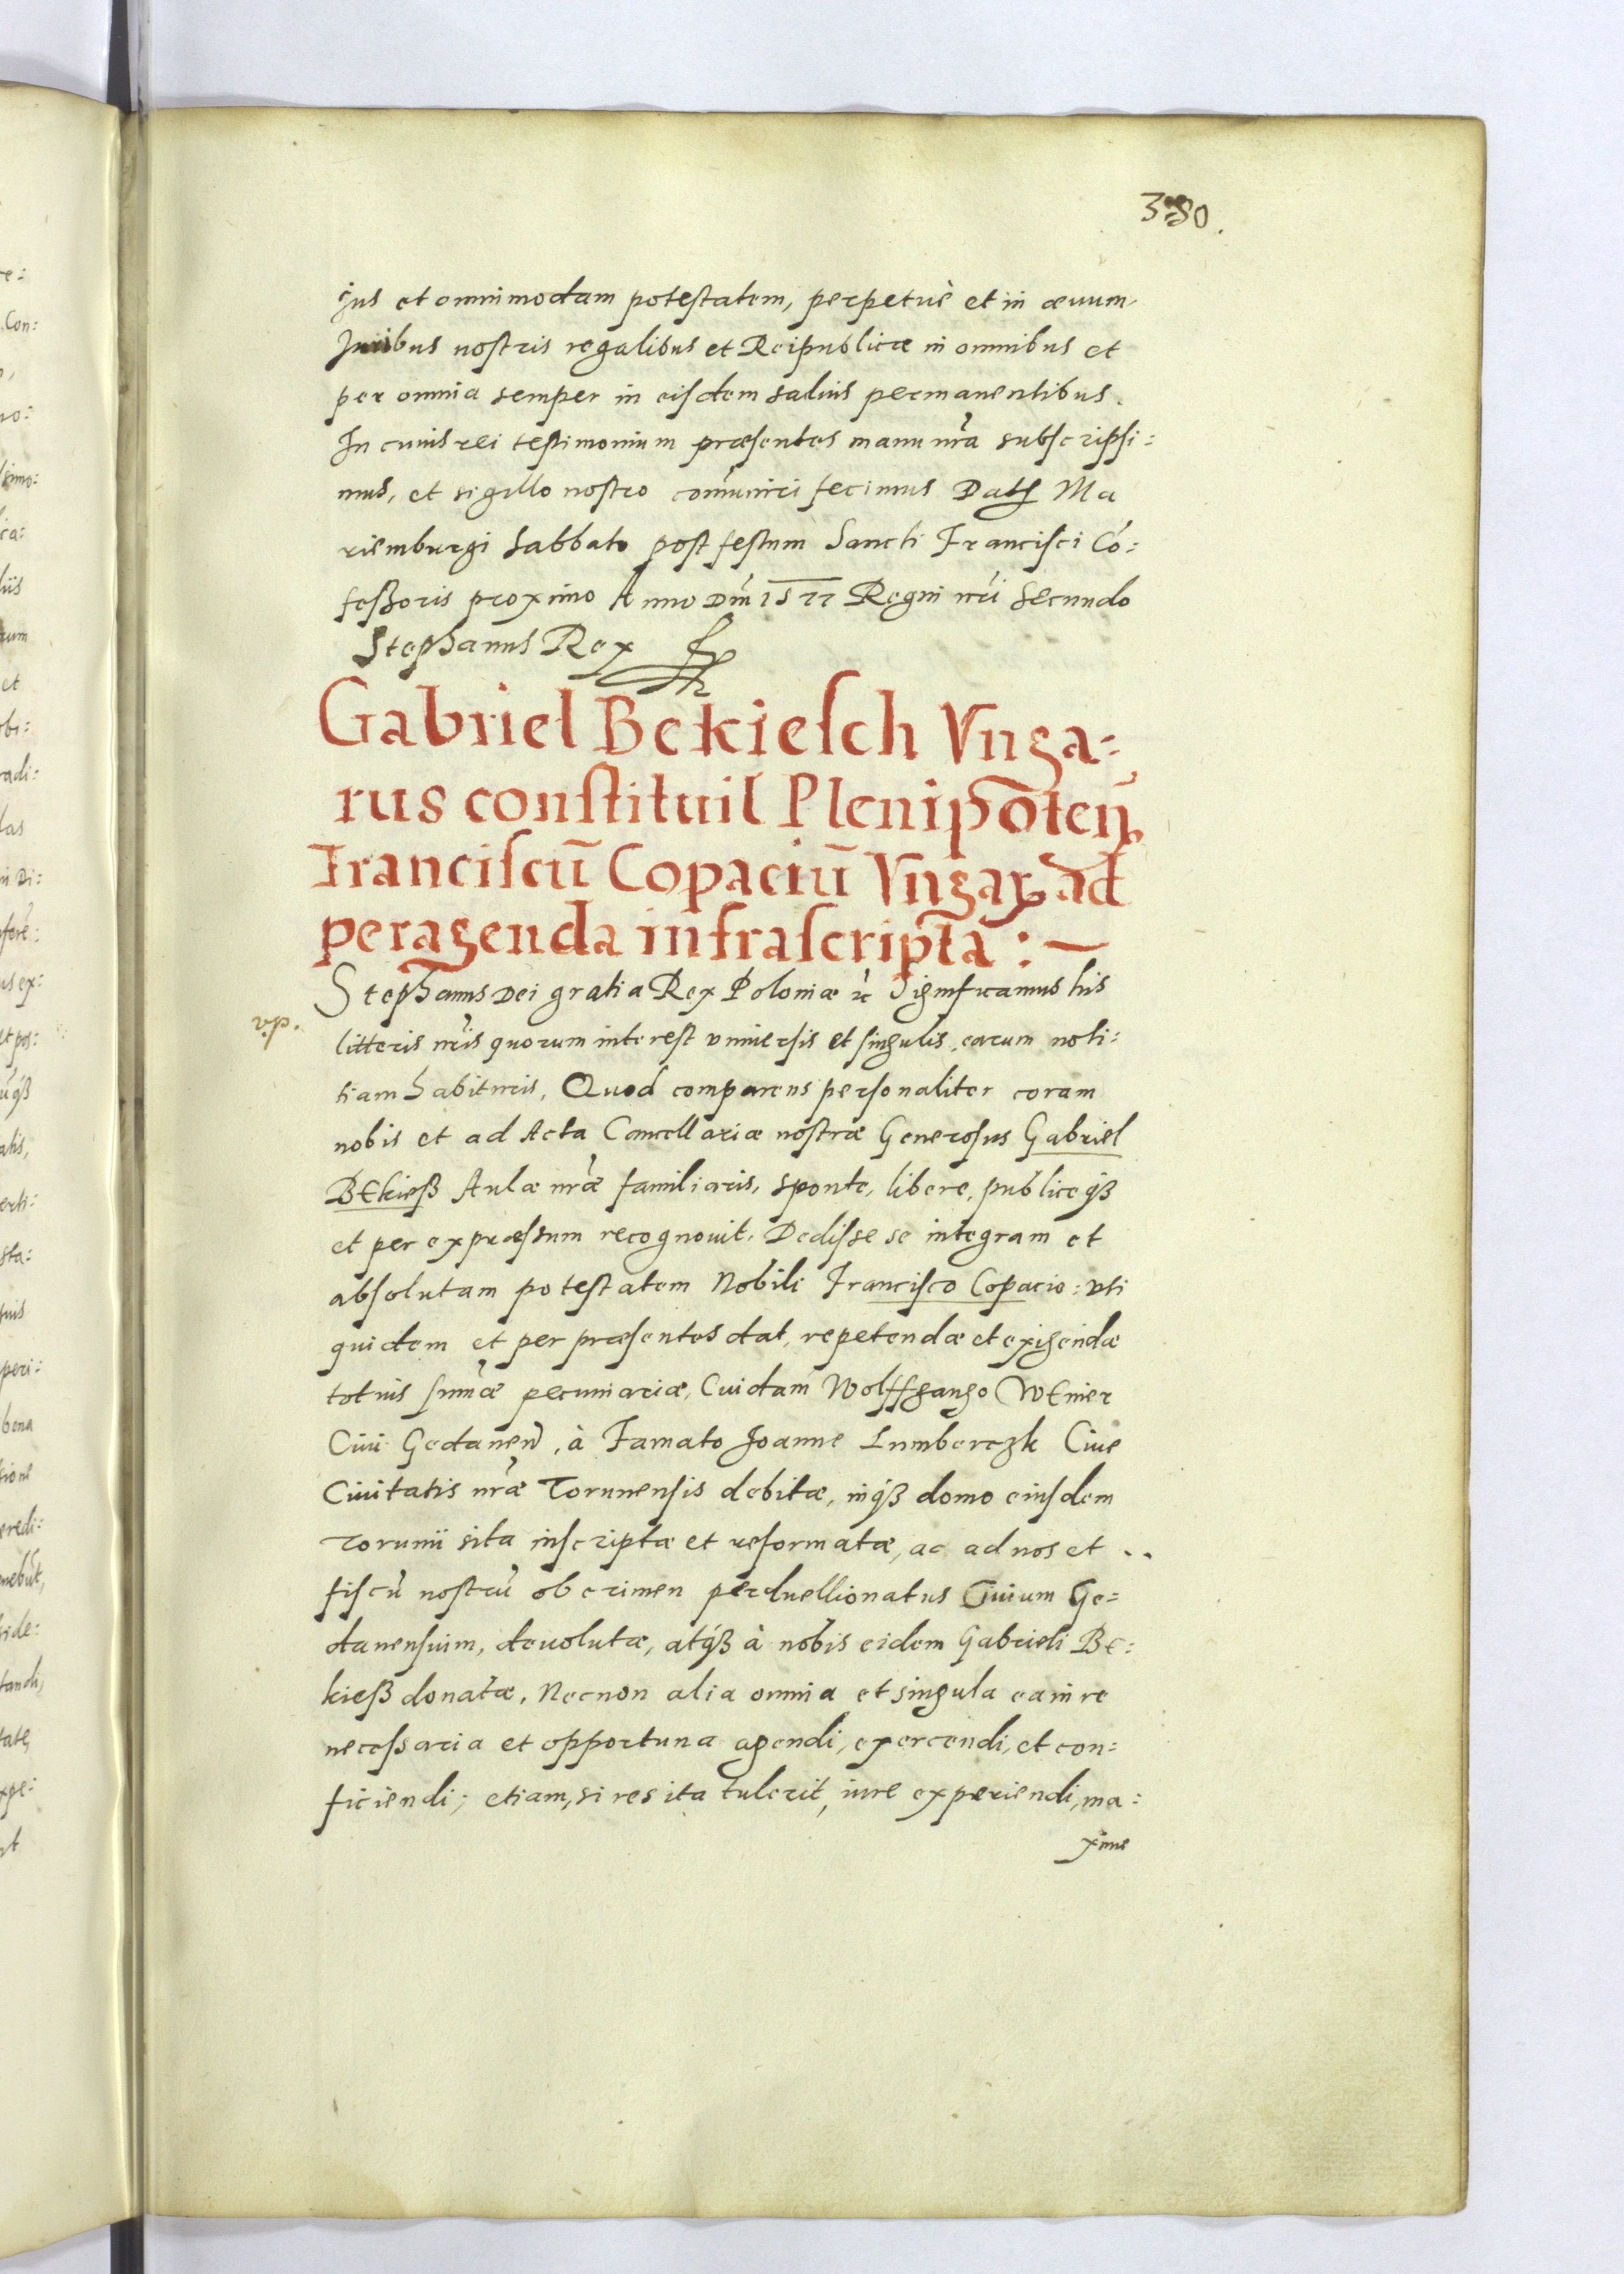 380.
jus et omnimodam potestatem, perpetuè et in æuum.
Juribus nostris regalibus et Reipublicæ in omnibus et
per omnia semper in eisdem saluis permanentibus.
In cuius rei testimonium præsentes manu nr̃a subscripsi:
mus, et sigillo nostro com̃uniri fecimus Dat Ma
riemburgi Sabbato post festum Sancti Francisci Cõ:
feßoris proximo Anno Dñi 1577 Regni nr̃i Secundo
Stephanus Rex
Gabriel Bekiesch Vnga:
rus constituit Plenipõteñ
Franciscũ Copaciũ Vngaꝝ ad
peragenda infrascripta : —
Stephanus Dei gratia Rex Poloniæ ꝛc Significamus his
v.p.
litteris nr̃is quorum interest vniuersis et singulis, earum noti:
tiam habituris, Quod comparens personaliter coram
nobis et ad Acta Cancellariæ nostræ Generosus Gabriel
Bekieß Aulæ nr̃æ familiaris, sponte, libere, publiceqꝫ
et per expræssum recognouit. Dedisse se integram et
absolutam potestatem Nobili Francisco Copacio : vti
quidem et per præsentes dat, repetendæ et exigendæ
totius sum̃æ pecuniariæ, Cuidam Wolffgango Wenier
Ciui Gedaneñ, à Famato Joanne Lumberczk Ciue
Ciuitatis nr̃æ Torunensis debitæ, inqꝫ domo eiusdem
Torunii sita inscriptæ et reformatæ, ac ad nos et ..
fiscũ nostrũ ob crimen perduellionatus Ciuium Ge:
danensium, deuolutæ, atqꝫ à nobis eidem Gabrieli Be:
kieß donatæ, Necnon alia omnia et singula ea in re
necessaria et opportuna agendi, exercendi, et con:
ficiendi; etiam, si res ita tulerit, iure experiendi, ma:
xime